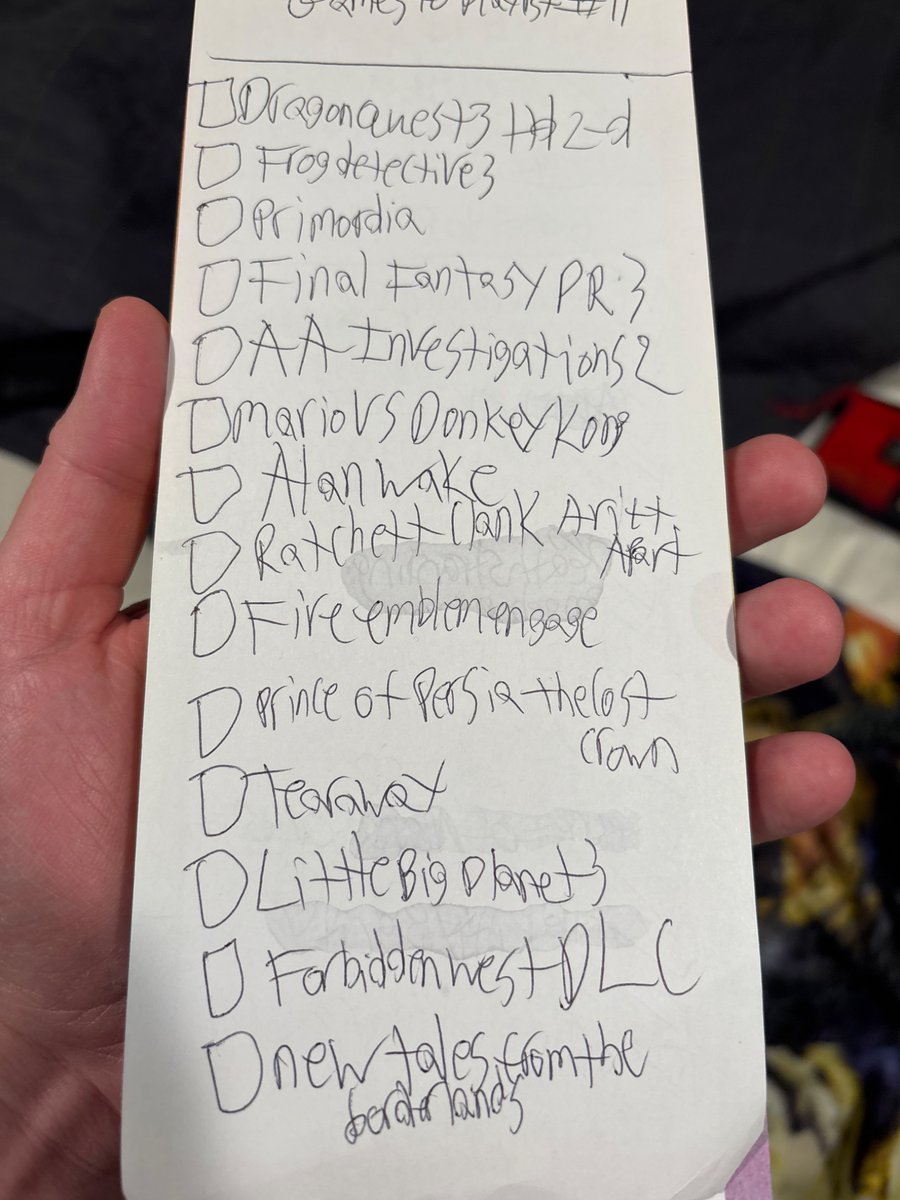 Games to Playlist #11
Dragonquest3 Hd2-d
Frogdetective3
Primordia
Final Fantasy PR.3
AA-Investigations2
marioVS Donkey Kong
Alanwake
Ratchett Clank
Apart
Fire emblem engage
prince of Persia the lost
crown
Tearaway
LittleBigPlanet3
ForbiddenwestDLC
new tales from the
borderlands